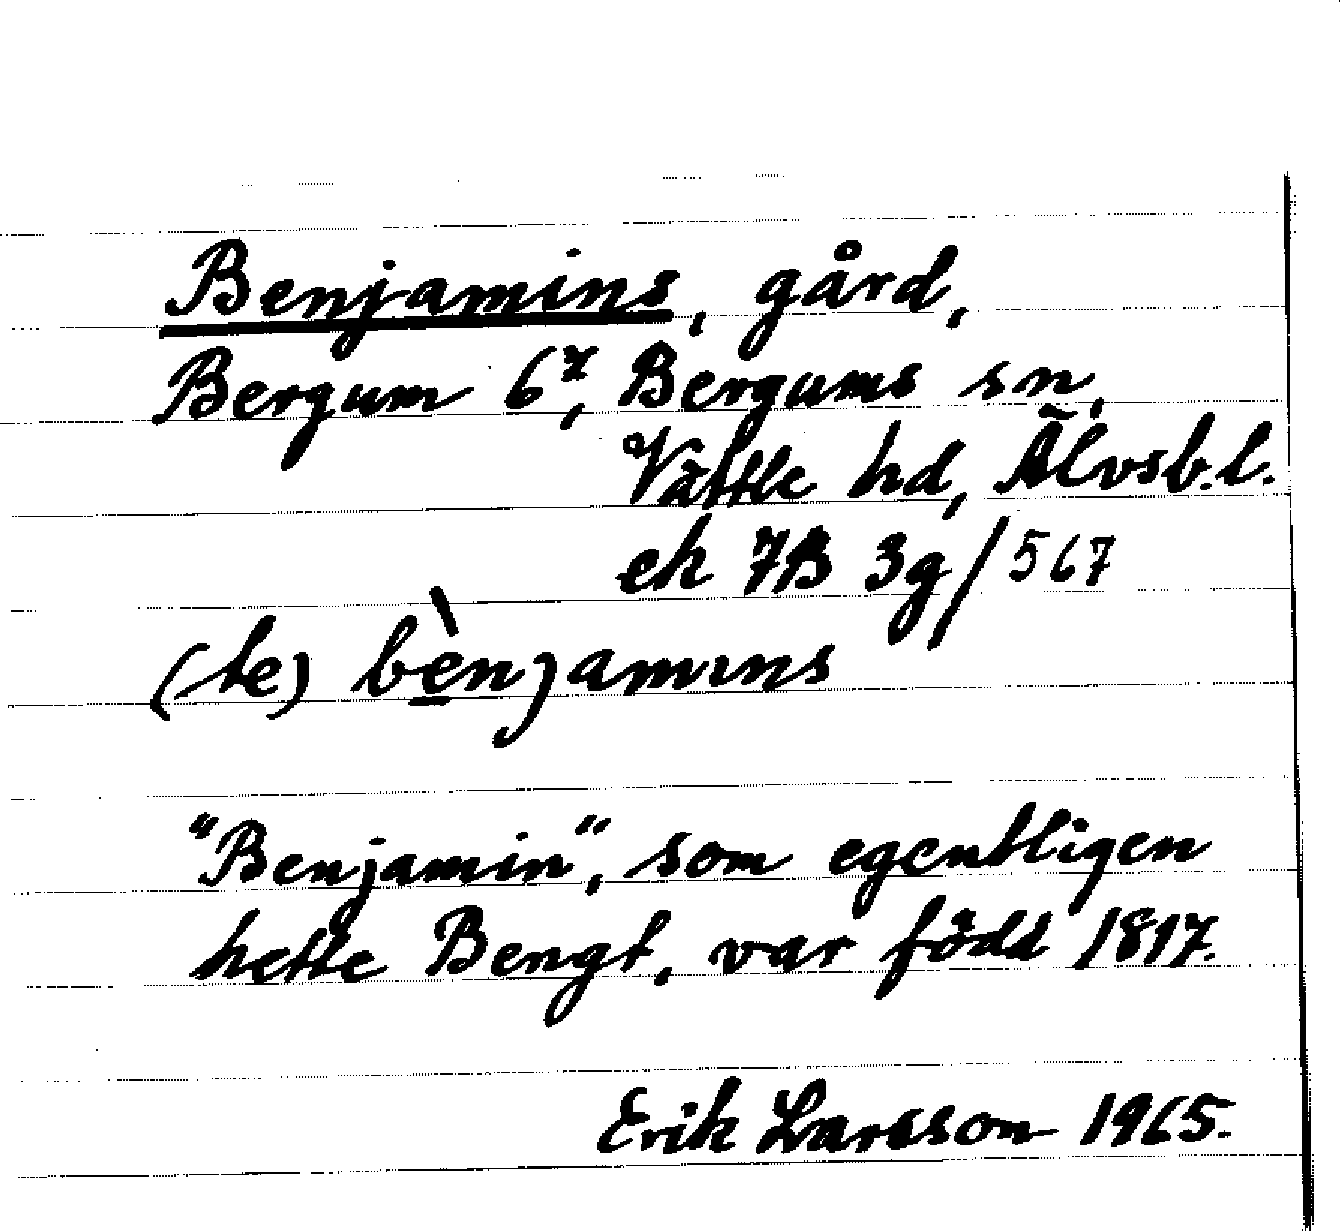 Benjamins, gård,
Bergum 6², Bergums sn,
Vättle hd, Älvsb.l.
ek 7B 3g/567
(te) bènjamıns
"Benjamin", som egentligen
hette Bengt, var född 1817.
Erik Larsson 1965.